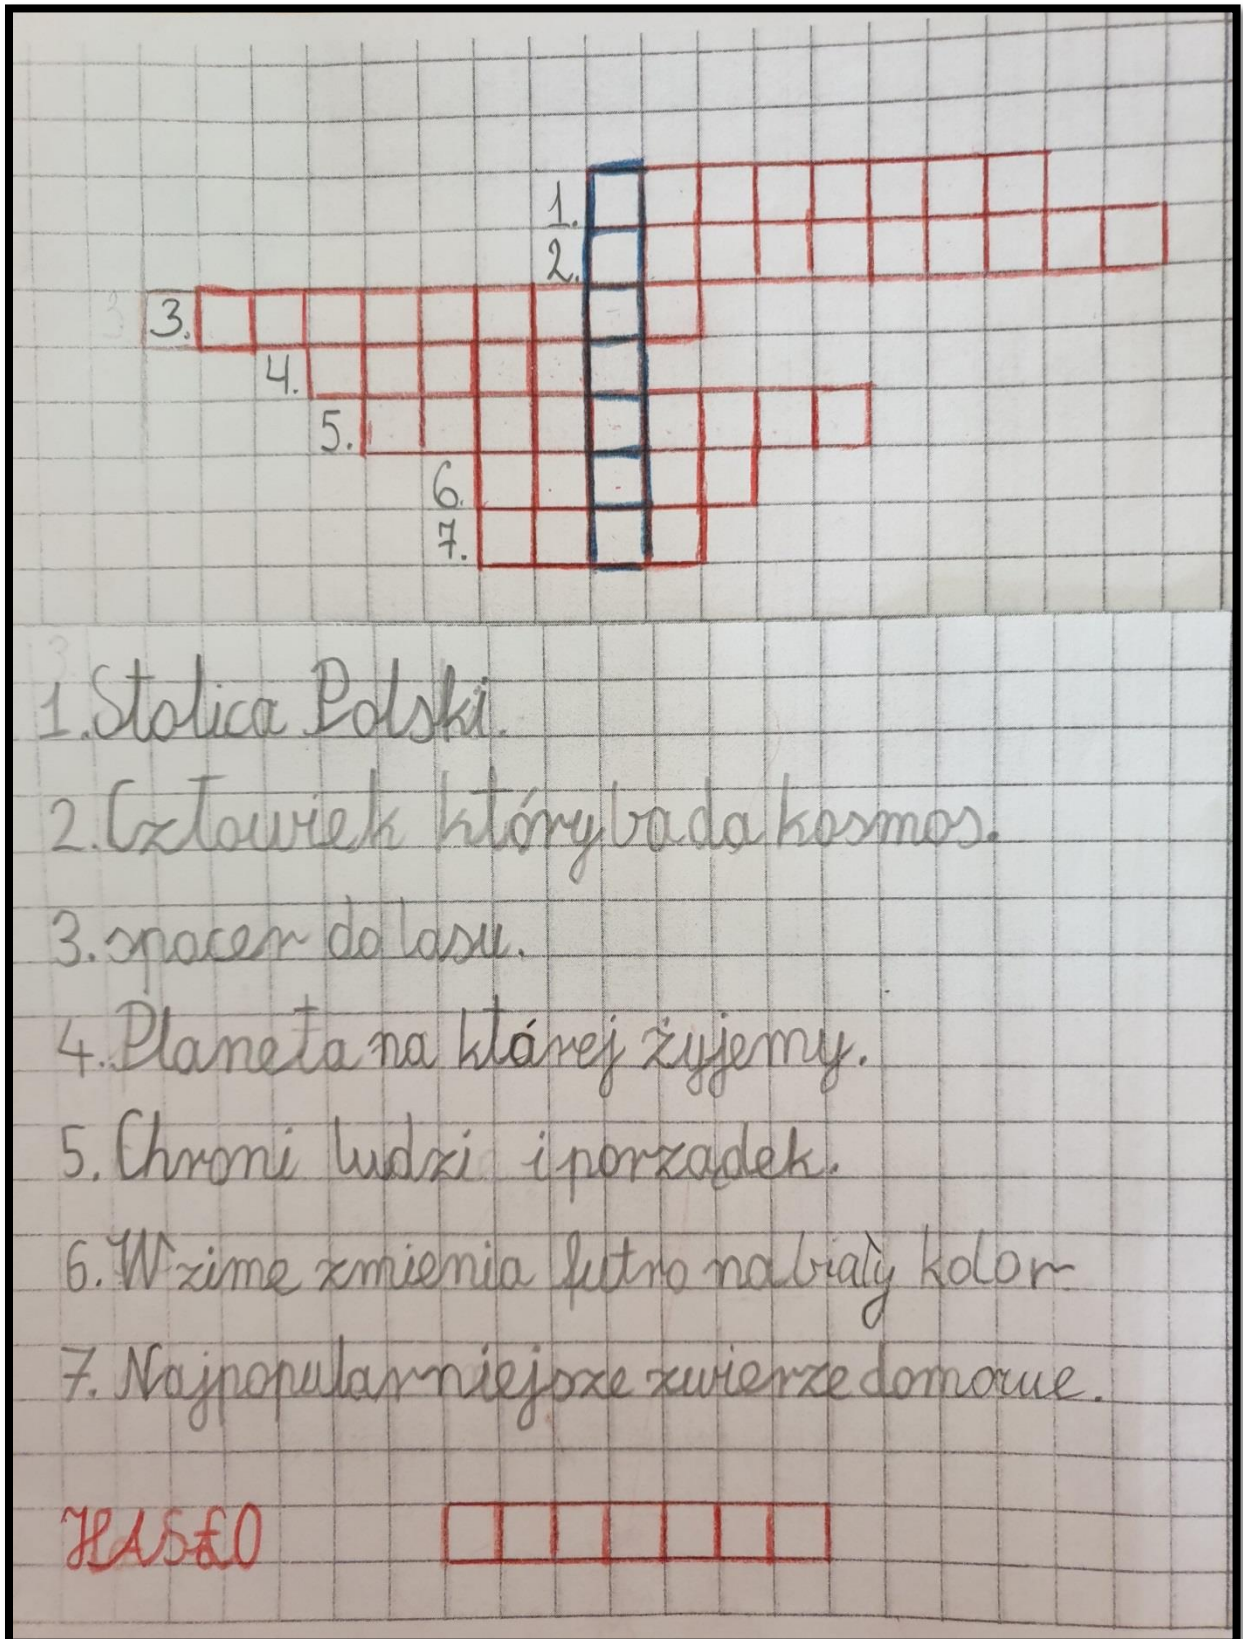 1.
2.
3.
4.
5.
6.
7.
1. Stolica Polski.
2. Człowiek który bada kosmos.
3. spacer do lasu.
4. Planeta na której żyjemy.
5. Chroni ludzi i porządek.
6. W zime zmienia futro na biały kolor
7. Najpopularniejsze zwierze domowe.
HASŁO